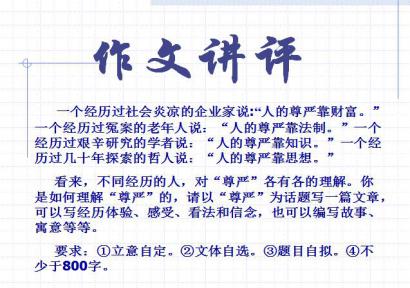 作文讲评
一个经历过社会炎凉的企业家说:“人的尊严靠财富。”
一个经历过冤案的老年人说：“人的尊严靠法制。”一个
经历过艰辛研究的学者说：“人的尊严靠知识。”一个经
历过几十年探索的哲人说：“人的尊严靠思想。”
看来，不同经历的人，对“尊严”各有各的理解。你
是如何理解“尊严”的，请以“尊严”为话题写一篇文章，
可以写经历体验、感受、看法和信念，也可以编写故事、
寓意等等。
要求：①立意自定。②文体自选。③题目自拟。④不
少于800字。